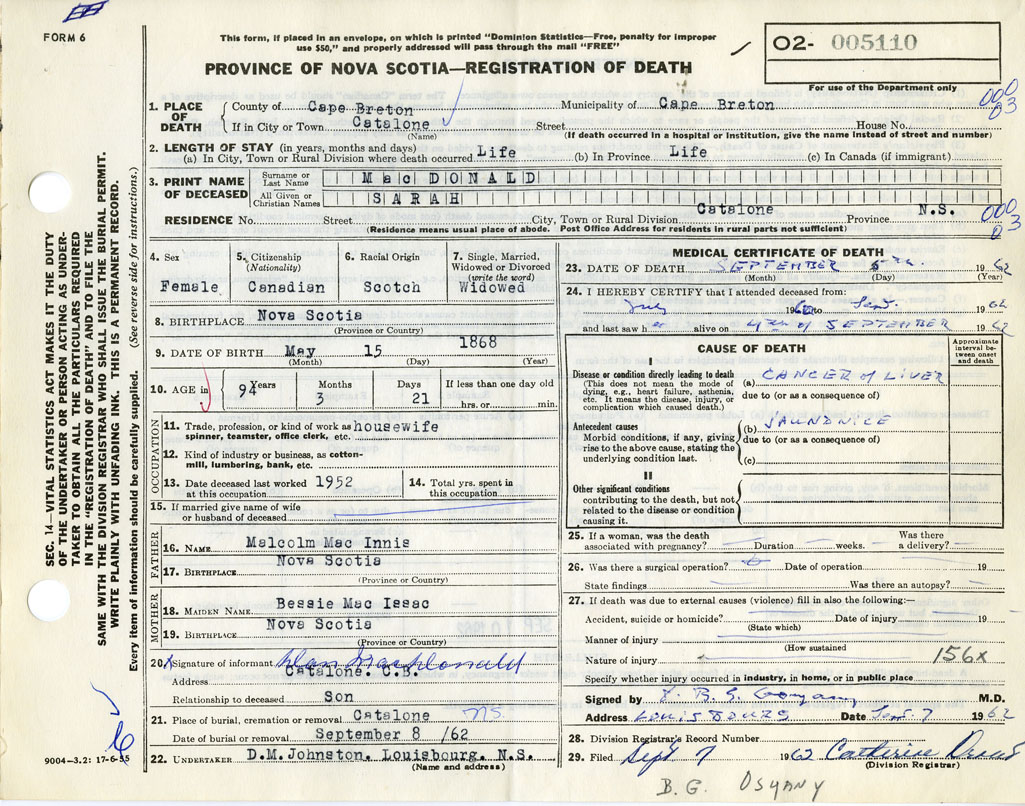 FORM 6
This form, if placed in an envelope, on which is printed "Dominion Statistics—Free, penalty for improper
use $50," and properly addressed will pass through the mail "FREE"
O2- 005110
PROVINCE OF NOVA SCOTIA—REGISTRATION OF DEATH
For use of the Department only
1. PLACE OF DEATH County of Cape Breton Municipality of Cape Breton
If in City or Town Catalone Street House No.
(Name) (If death occurred in a hospital or institution, give the name instead of street and number)
2. LENGTH OF STAY (in years, months and days)
(a) In City, Town or Rural Division where death occurred Life (b) In Province Life (c) In Canada (if immigrant)
3. PRINT NAME OF DECEASED Surname or Last Name MacDONALD
All Given or Christian Names SARAH
RESIDENCE No. Street City, Town or Rural Division Catalone Province N.S.
(Residence means usual place of abode. Post Office Address for residents in rural parts not sufficient)
4. Sex Female
5. Citizenship (Nationality) Canadian
6. Racial Origin Scotch
7. Single, Married, Widowed or Divorced (write the word) Widowed
8. BIRTHPLACE Nova Scotia
(Province or Country)
9. DATE OF BIRTH May 15 1868
(Month) (Day) (Year)
10. AGE in 94 Years 3 Months 21 Days If less than one day old hrs. or min.
OCCUPATION
11. Trade, profession, or kind of work as spinner, teamster, office clerk, etc. housewife
12. Kind of industry or business, as cotton-mill, lumbering, bank, etc.
13. Date deceased last worked at this occupation 1952
14. Total yrs. spent in this occupation
15. If married give name of wife or husband of deceased
FATHER
16. NAME Malcolm Mac Innis
17. BIRTHPLACE Nova Scotia
(Province or Country)
MOTHER
18. MAIDEN NAME Bessie Mac Issac
19. BIRTHPLACE Nova Scotia
(Province or Country)
20. X Signature of informant Dan MacDonald
Address Catalone, C.B.
Relationship to deceased Son
21. Place of burial, cremation or removal Catalone NS.
Date of burial or removal September 8 /62
22. UNDERTAKER D.M.Johnston, Louisbourg, N.S.
(Name and address)
MEDICAL CERTIFICATE OF DEATH
23. DATE OF DEATH SEPTEMBER 1962
(Month) (Day) (Year)
24. I HEREBY CERTIFY that I attended deceased from:
July 1962 to Sept. 1962
and last saw her alive on 4th of SEPTEMBER 1962
CAUSE OF DEATH
Approximate interval between onset and death
I
Disease or condition directly leading to death
(This does not mean the mode of dying, e.g., heart failure, asthenia, etc. It means the disease, injury, or complication which caused death.)
(a) CANCER of LIVER
due to (or as a consequence of)
Antecedent causes
Morbid conditions, if any, giving rise to the above cause, stating the underlying condition last.
(b) JAUNDNICE
due to (or as a consequence of)
(c)
II
Other significant conditions
contributing to the death, but not related to the disease or condition causing it.
25. If a woman, was the death associated with pregnancy? Duration weeks. Was there a delivery?
26. Was there a surgical operation? Date of operation 19
State findings Was there an autopsy?
27. If death was due to external causes (violence) fill in also the following:—
Accident, suicide or homicide? Date of injury 19
(State which)
Manner of injury
(How sustained
Nature of injury 156x
Specify whether injury occurred in industry, in home, or in public place
Signed by M.D.
Address LOUISBOURG Date Sept. 7 1962
28. Division Registrar's Record Number
29. Filed Sept 7 1962 Catherine
(Division Registrar)
B. G. OSYANY
9004—3.2: 17-6-55
SEC. 14—VITAL STATISTICS ACT MAKES IT THE DUTY
OF THE UNDERTAKER OR PERSON ACTING AS UNDER-
TAKER TO OBTAIN ALL THE PARTICULARS REQUIRED
IN THE "REGISTRATION OF DEATH" AND TO FILE THE
SAME WITH THE DIVISION REGISTRAR WHO SHALL ISSUE THE BURIAL PERMIT.
WRITE PLAINLY WITH UNFADING INK. THIS IS A PERMANENT RECORD.
Every item of information should be carefully supplied. (See reverse side for instructions.)